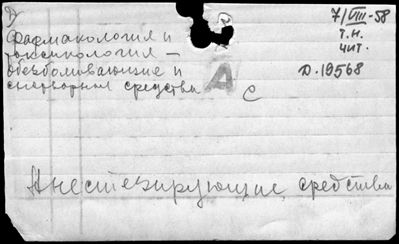 7/VIII-58
Т.Н.
чит.
D.19568
Фармакология и
токсикология —
обезболивающие и
снотворные средства
A
с
Анестезирующие средства